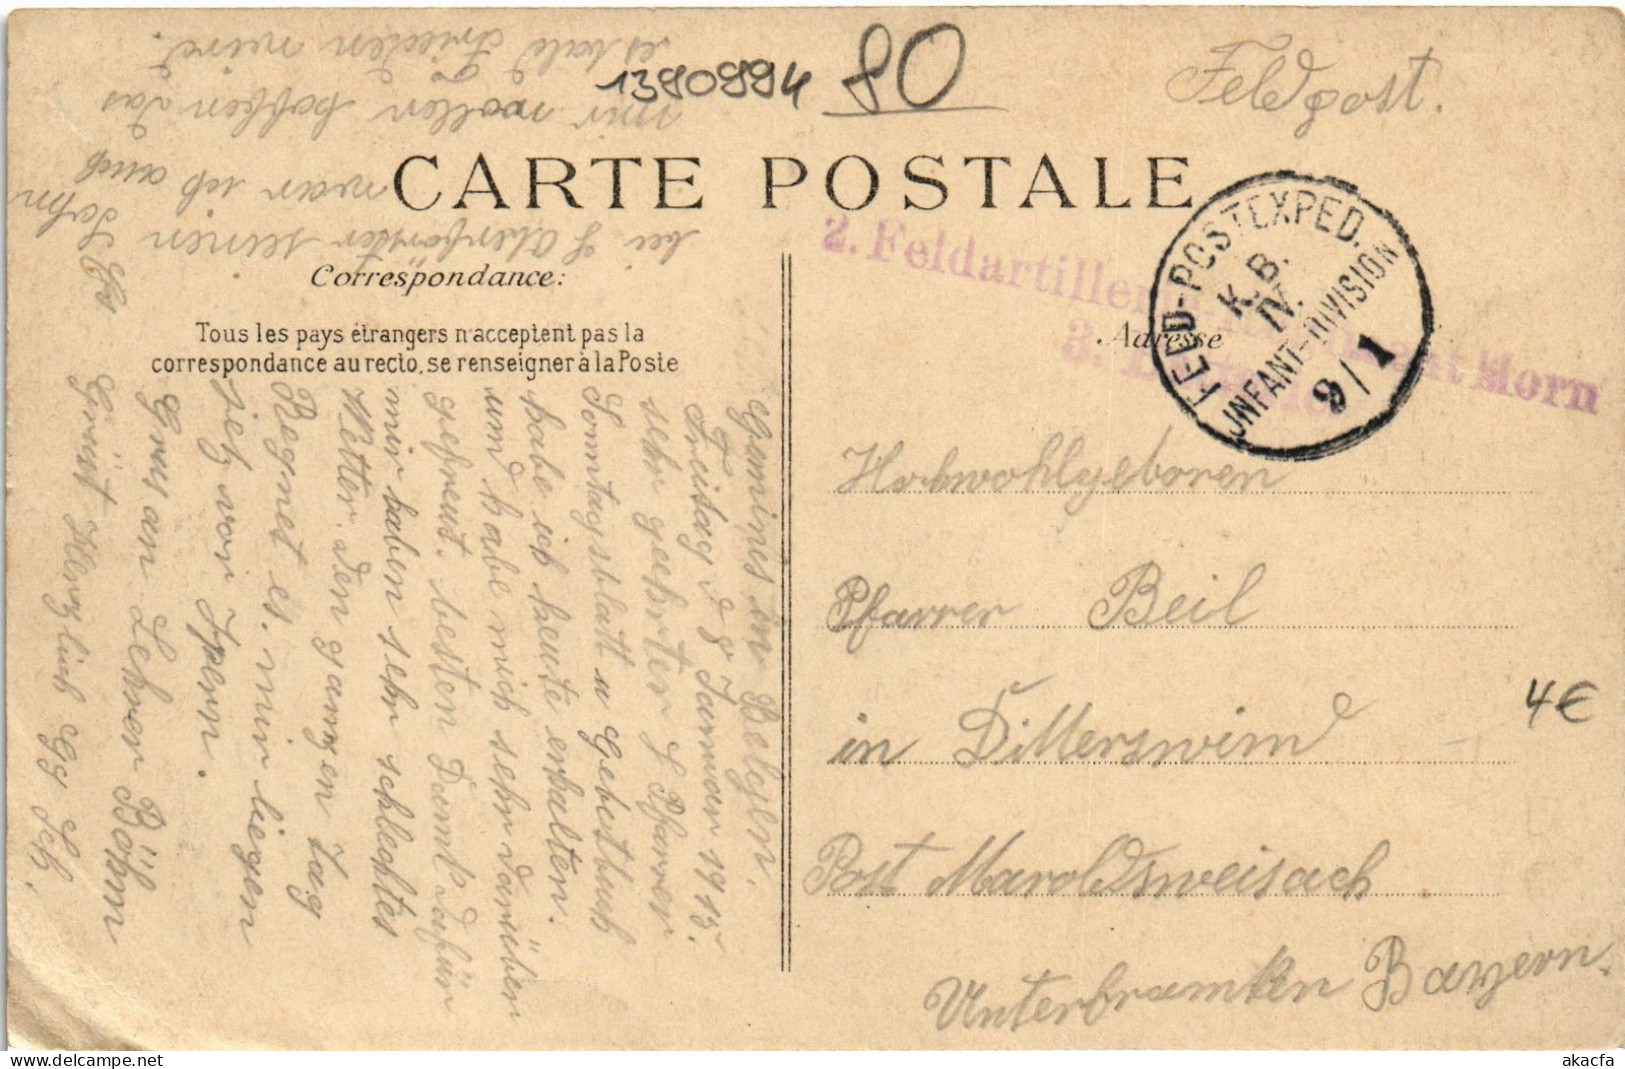 1390994 80
Feldpost.
CARTE POSTALE
Correspondance:
Tous les pays étrangers n'acceptent pas la
correspondance au recto, se renseigner à la Poste
Adresse
2. Feldartillerie Horn
3.
FELD-POSTEXPED.
K.B.
IV.
INFANT-DIVISION
9/1
Hochwohlgeboren
Pfarrer Beil
in Ditterswind
Post Maroldsweisach
Unterfranken Bayern.
4€
Geminis in Belgien.
Freitag d 8 Januar 1915.
sehr geehrter H Pfarrer
Sonntagsblatt u Gebetbuch
habe ich heute erhalten.
und habe mich sehr darüber
gefreut. besten Dank dafür
wir haben sehr schlechtes
Wetter. den ganzen Tag
Regnet es. wir liegen
jetz vor Ypern.
Grus an Lehrer Böhm
Grüst Herzlich Gg Sch.
bei H seinen Sohn
war ich auch
wir wollen hoffen das
es bald Frieden wird.
akacfa